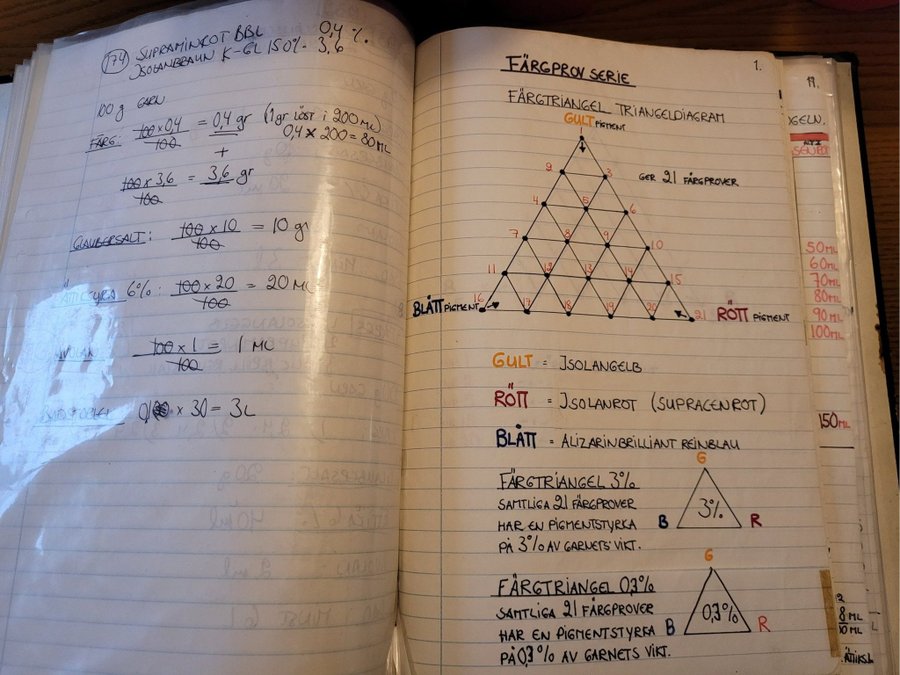 174 SUPRAMINROT BBL 0,4 %.
ISOLANBRAUN K-GL 150% 3,6
100 g GARN
FÄRG: 100 x 0,4 / 100 = 0,4 gr (1 gr löst i 200 ML)
0,4 x 200 = 80 ML
+
100 x 3,6 / 100 = 3,6 gr
GLAUBERSALT: 100 x 10 / 100 = 10 gr
6%: 100 x 20 / 100 = 20 ML
100 x 1 / 100 = 1 ML
x 30 = 3L
1.
FÄRGPROV SERIE
FÄRGTRIANGEL TRIANGELDIAGRAM
GULT PIGMENT
1
2 3
GER 21 FÄRGPROVER
4 5 6
7 8 9 10
11 12 13 14 15
16 17 18 19 20 21
BLÅTT PIGMENT
RÖTT PIGMENT
GULT = ISOLANGELB
RÖTT = ISOLANROT (SUPRACENROT)
BLÅTT = ALIZARINBRILLIANT REINBLAU
FÄRGTRIANGEL 3%
SAMTLIGA 21 FÄRGPROVER
HAR EN PIGMENTSTYRKA
PÅ 3% AV GARNETS VIKT.
G
3%
B R
FÄRGTRIANGEL 0,3%
SAMTLIGA 21 FÄRGPROVER
HAR EN PIGMENTSTYRKA
PÅ 0,3% AV GARNETS VIKT.
G
0,3%
B R
50 ML
60 ML
70 ML
80 ML
90 ML
100 ML
150 ML
8 ML
10 ML